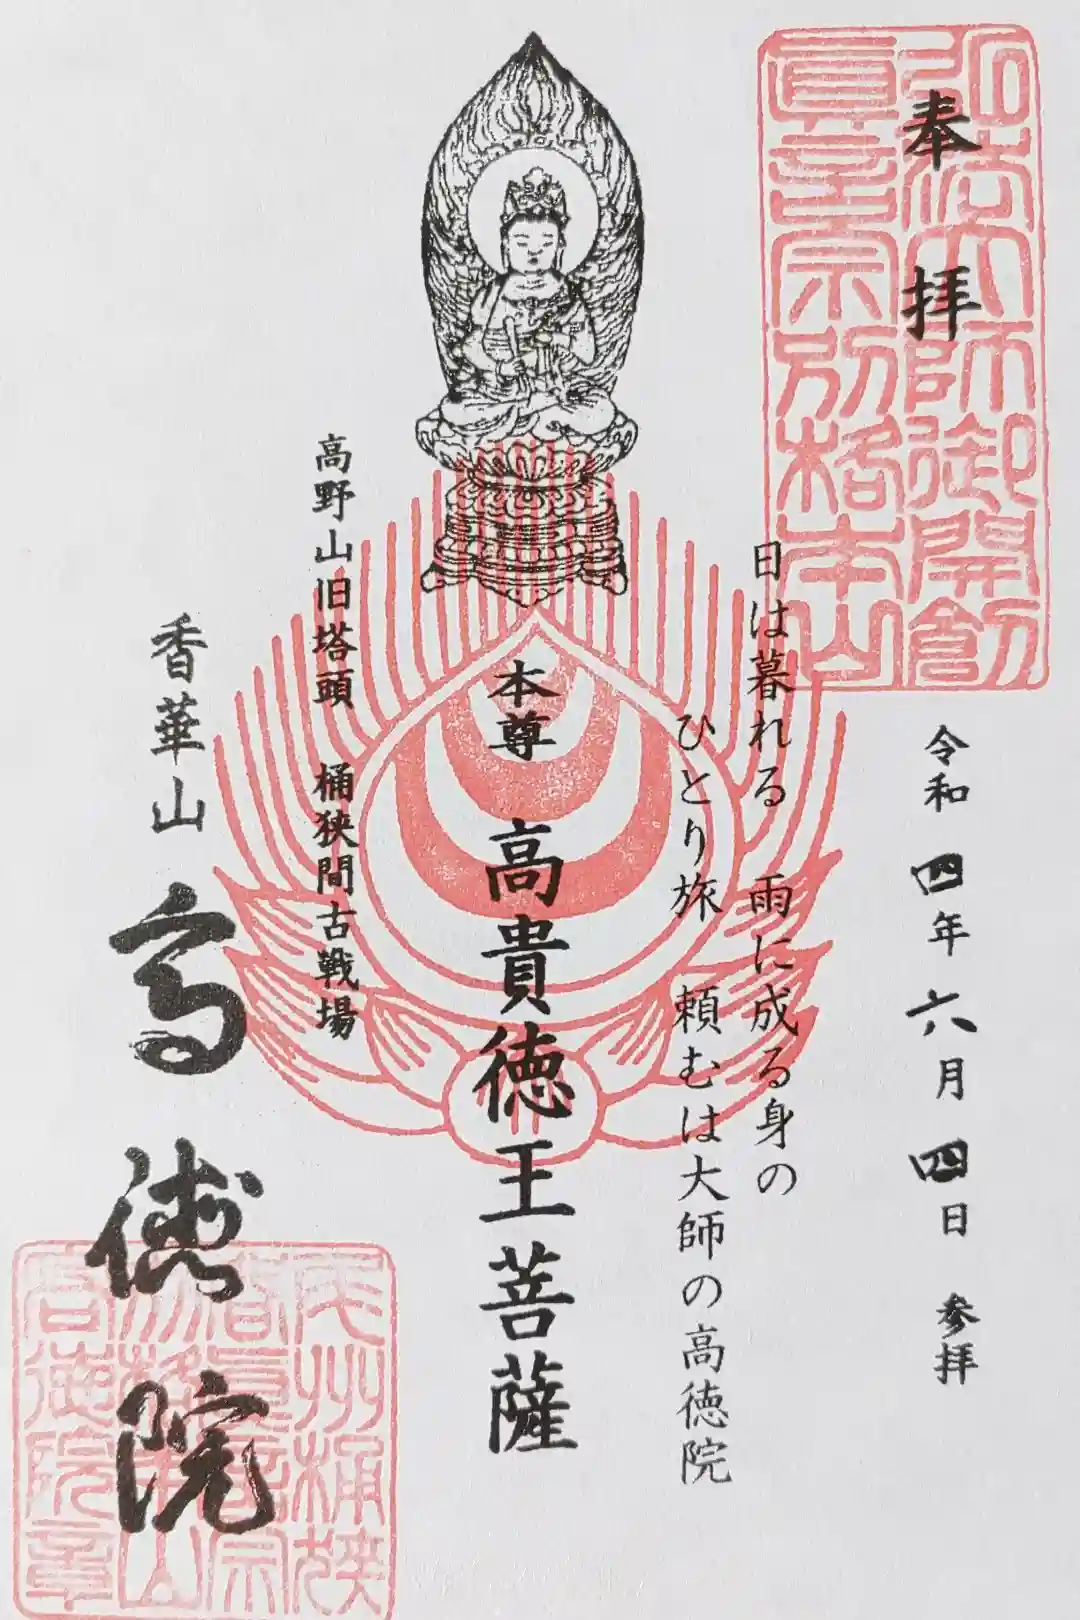 奉拝
弘法大師御開創
真言宗別格本山
令和四年六月四日 参拝
日は暮れる 雨に成る身の
ひとり旅 頼むは大師の高徳院
本尊 高貴徳王菩薩
高野山旧塔頭 桶狭間古戦場
香華山 高徳院